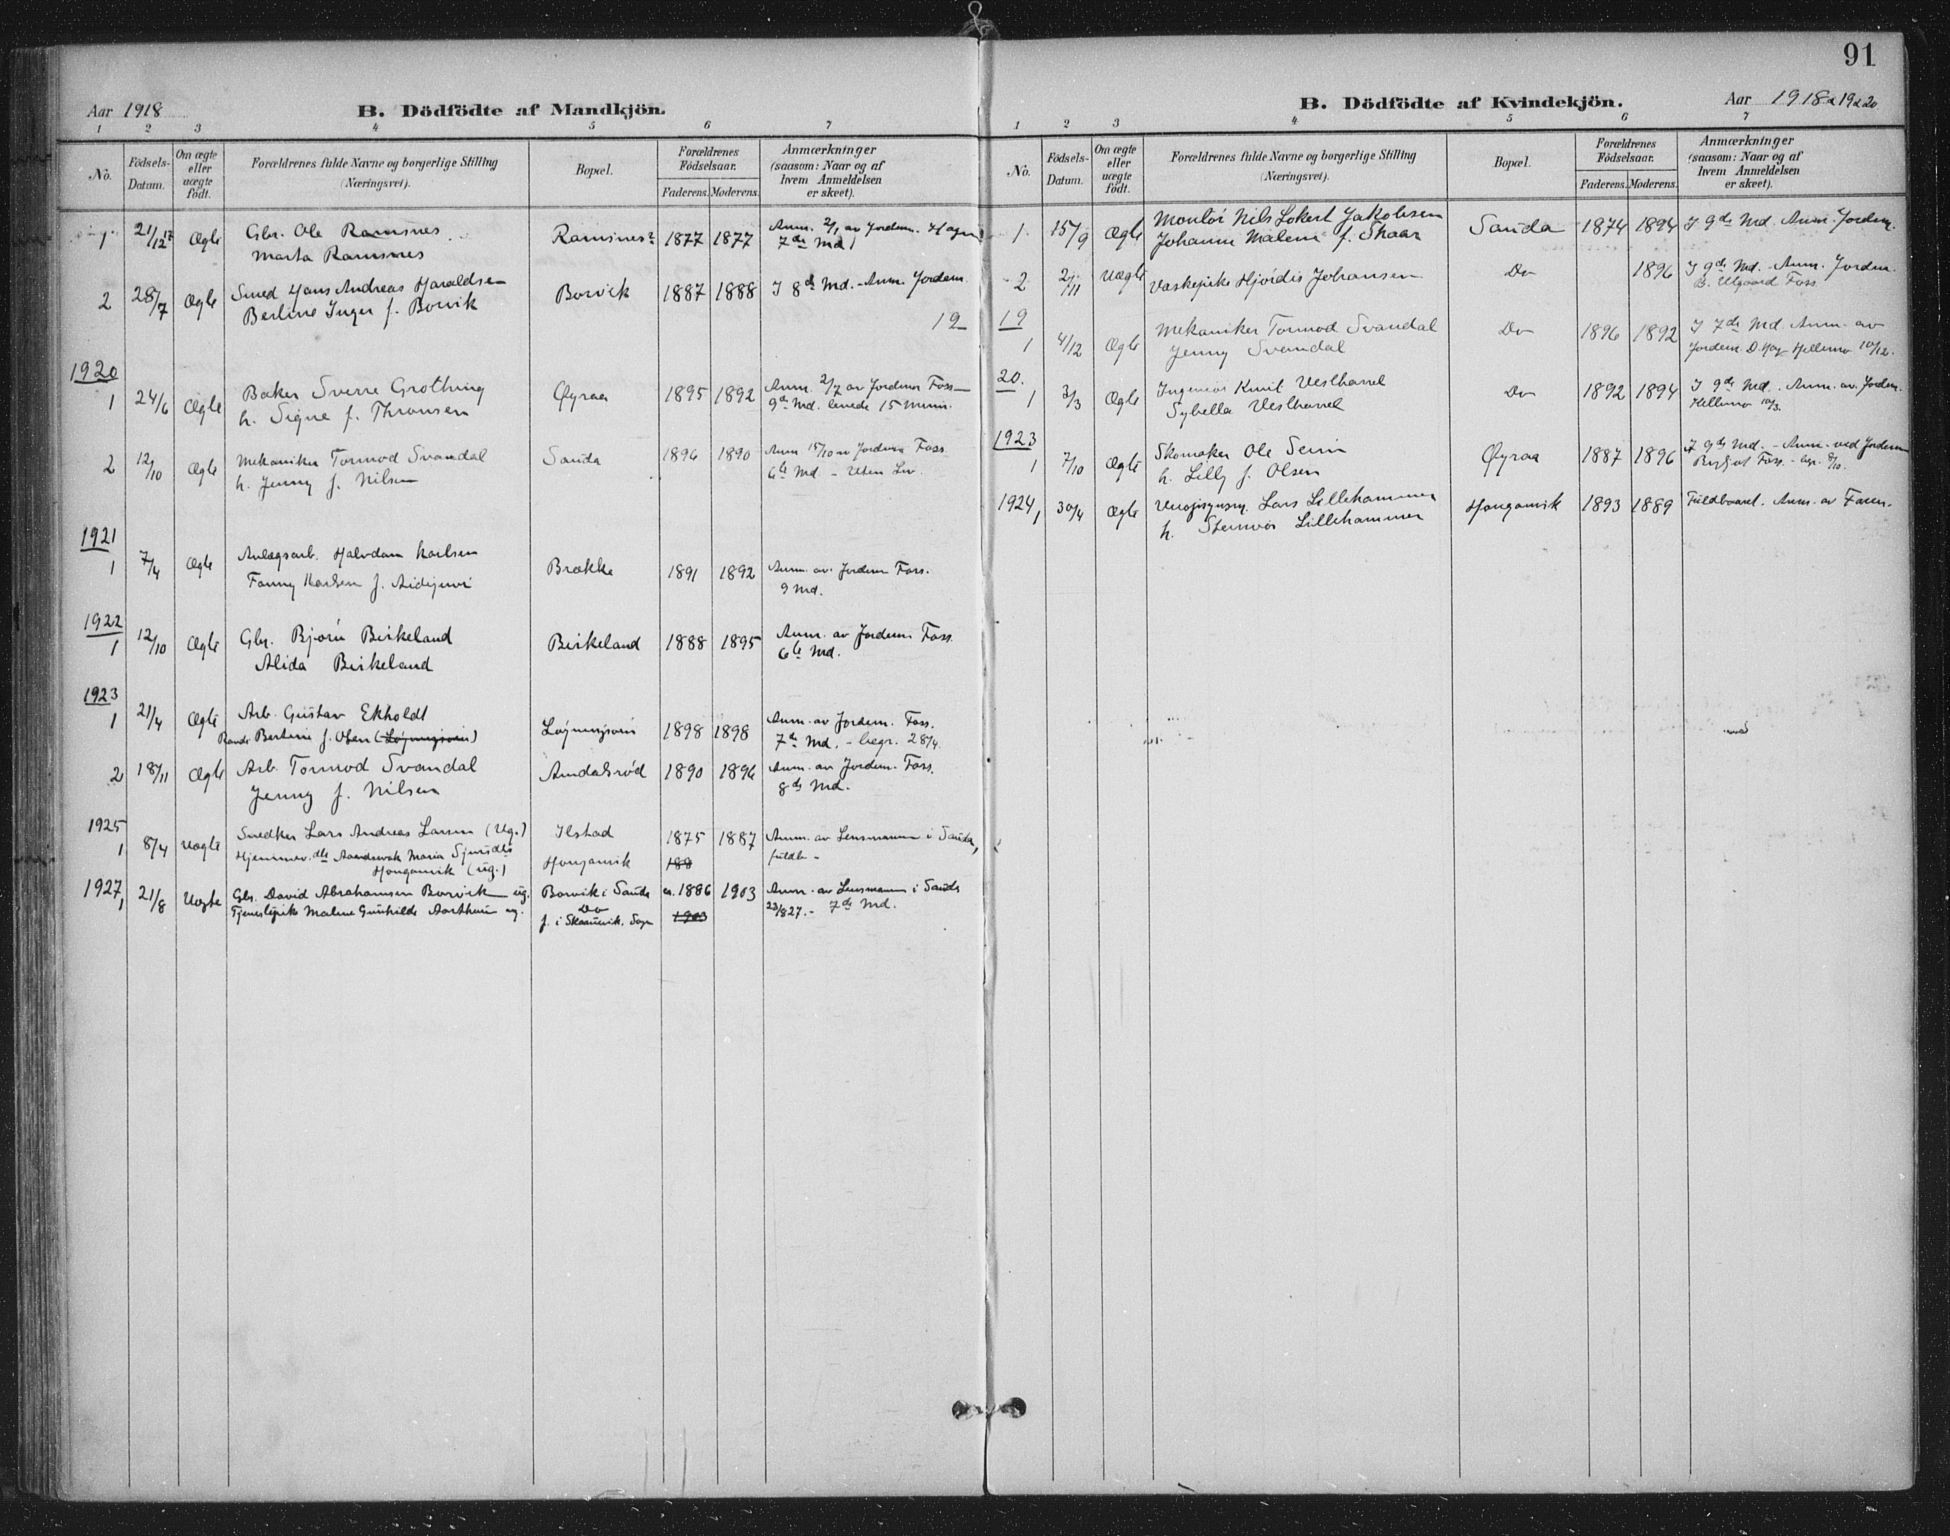 91
Aar 1918
B. Dödfödte af Mandkjön.
1 2 3 4 5 6 7
No.
Födsels-Datum.
Om ægte eller uægte födt.
Forældrenes fulde Navne og borgerlige Stilling (Næringsvei).
Bopæl.
Forældrenes Födselsaar.
Faderens. Moderens.
Anmærkninger (saasom: Naar og af hvem Anmeldelsen er skeet).
1 21/12 17 Ægte Gbr. Ole Ramsnes Ramsnes 1877 1877 Anm. 2/1 av Jordem.
Marta Ramsnes 7de Md
2 28/7 Ægte Smed Hans Andreas Haraldsen Borvik 1887 1888 I 8de Md. - Anm. Jordem.
Berline Inger f. Borvik
19
1920
1 24/6 Ægte Baker Sverre Grothing Øyraa 1895 1892 Anm. 2/7 av Jordem Foss
h. Signe f. Thronsen 9de Md. levede 15 Minu.
2 12/10 Ægte Mekaniker Tormod Svandal Sauda 1896 1890 Anm 15/10 av Jordem Foss.
h. Jenny f. Nilsen 6te Md - Uten Liv.
1921
1 7/4 Ægte Anlægsarb. Halvdan Karlsen Brække 1891 1892 Anm. av Jordem Foss.
Fanny Karlsen f. 9 Md.
1922
1 12/10 Ægte Gbr. Bjørn Birkeland Birkeland 1888 1895 Anm. av Jordem Foss.
Alida Birkeland 6te Md.
1923
1 21/4 Ægte Arb. Gustav Ekholdt 1898 1898 Anm. av Jordem. Foss.
Bertine f. Olsen 7de Md. - begr. 28/4.
2 18/11 Ægte Arb. Tormod Svandal Amdalsrød 1890 1896 Anm. av Jordem. Foss.
Jenny f. Nilsen 8de Md.
1925
1 8/4 Uægte Snedker Lars Andreas Larsen (Ug.) Ilstad 1875 1887 Anm. av Lensmannen i Sauda,
Maria Honganvik (ug.) Honganvik 188 fuldb -
1927
1 21/8 Uegte Gbr. David Abrahamsen Borvik ug. Borvik i Sauda ca. 1886 1903 Anm. av Lensmann i Sauda
Tjenestepike Malene Gunhilde Aarthun ug. Do 1903 23/8 27. - 7de Md.
f. i Skaanevik. Sogn
Aar 1918 & 19 & 20
B. Dödfödte af Kvindekjön.
1 2 3 4 5 6 7
No.
Födsels-Datum.
Om ægte eller uægte födt.
Forældrenes fulde Navne og borgerlige Stilling (Næringsvei).
Bopæl.
Forældrenes Födselsaar.
Faderens. Moderens.
Anmærkninger (saasom: Naar og af hvem Anmeldelsen er skeet).
1 15/9 Ægte Montør Nils Lokert Jakobsen Sauda 1874 1894 I 9de Md. Anm. Jordem.
Johanne Malene f. Skaar
2 2/11 Uægte Vaskepike Hjørdis Johansen Do 1896 I 9de Md. Anm. Jordem.
B. Utgaard Foss
19
1 4/12 Ægte Mekaniker Tormod Svandal Do 1896 1892 I 7de Md Anm. av
Jenny Svandal Jordem. Hellemo 10/12.
20.
1 3/3 Ægte Ingeniør Knut Vesthavel Do 1892 1894 I 9de Md. Anm. av Jordem.
Sybella Vesthavel Hellemo 10/3.
1923
1 7/10 Ægte Skomaker Ole Øyraa 1887 1896 I 9de Md. - Anm. ved Jordem
h. Lilly f. Olsen Foss
1924
1 30/4 Ægte Lars Lillehammer Honganvik 1893 1889 Fuldbaaret. Anm. av Faren.
h. Steinvør Lillehammer